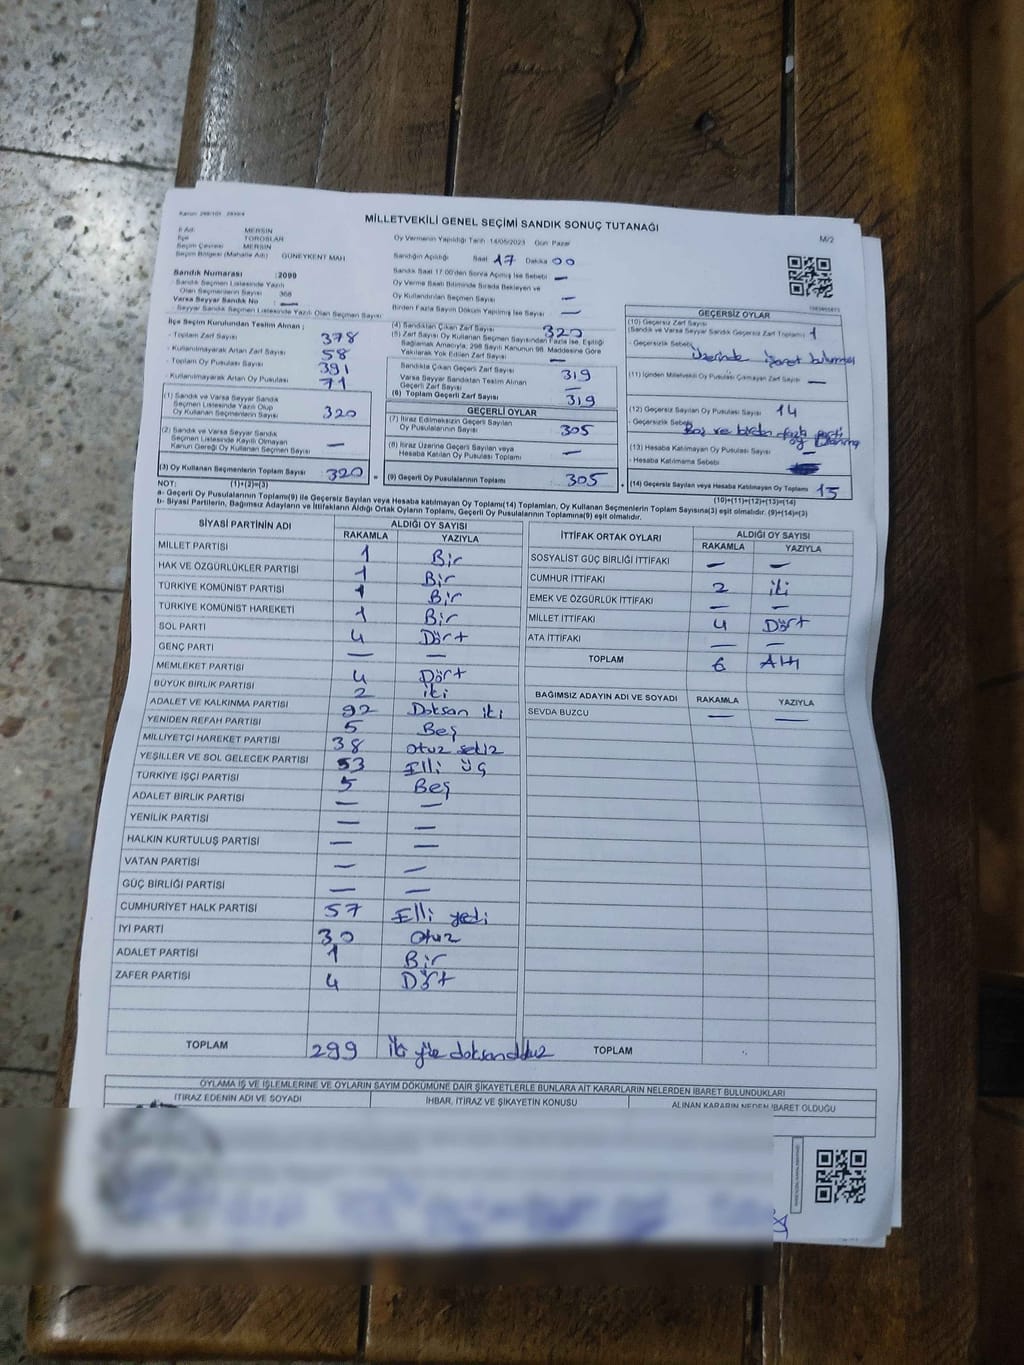 MİLLETVEKİLİ GENEL SEÇİMİ SANDIK SONUÇ TUTANAĞI
M/2
İl Adı: MERSİN
İlçe TOROSLAR
Seçim Çevresi MERSİN
Seçim Bölgesi (Mahalle Adı) GÜNEYKENT MAH.
Sandık Numarası :2099
Sandık Seçmen Listesinde Yazılı
Olan Seçmenlerin Sayısı 368
Varsa Seyyar Sandık No : —
Seyyar Sandık Seçmen Listesinde Yazılı Olan Seçmen Sayısı
Oy Vermenin Yapıldığı Tarih 14/05/2023 Gün Pazar
Sandığın Açıldığı Saat 17 Dakika 00
Sandık Saat 17.00'den Sonra Açılmış İse Sebebi —
Oy Verme Saati Bitiminde Sırada Bekleyen ve
Oy Kullandırılan Seçmen Sayısı —
Birden Fazla Sayım Döküm Yapılmış İse Sayısı —
İlçe Seçim Kurulundan Teslim Alınan ;
- Toplam Zarf Sayısı 378
- Kullanılmayarak Artan Zarf Sayısı 58
- Toplam Oy Pusulası Sayısı 391
- Kullanılmayarak Artan Oy Pusulası 71
(1) Sandık ve Varsa Seyyar Sandık
Seçmen Listesinde Yazılı Olup
Oy Kullanan Seçmenlerin Sayısı 320
(2) Sandık ve Varsa Seyyar Sandık
Seçmen Listesinde Kayıtlı Olmayan
Kanun Gereği Oy Kullanan Seçmen Sayısı —
(3) Oy Kullanan Seçmenlerin Toplam Sayısı 320
(4) Sandıktan Çıkan Zarf Sayısı 320
(5) Zarf Sayısı Oy Kullanan Seçmen Sayısından Fazla İse, Eşitliği
Sağlamak Amacıyla, 298 Sayılı Kanunun 98. Maddesine Göre
Yakılarak Yok Edilen Zarf Sayısı —
Sandıkta Çıkan Geçerli Zarf Sayısı 319
Varsa Seyyar Sandıktan Teslim Alınan
Geçerli Zarf Sayısı —
(6) Toplam Geçerli Zarf Sayısı 319
GEÇERLİ OYLAR
(7) İtiraz Edilmeksizin Geçerli Sayılan
Oy Pusulalarının Sayısı 305
(8) İtiraz Üzerine Geçerli Sayılan veya
Hesaba Katılan Oy Pusulası Toplamı —
(9) Geçerli Oy Pusulalarının Toplamı 305
GEÇERSİZ OYLAR
(10) Geçersiz Zarf Sayısı
(Sandık ve Varsa Seyyar Sandık Geçersiz Zarf Toplamı) 1
- Geçersizlik Sebebi
Üzerinde işaret bulunması
(11) İçinden Milletvekili Oy Pusulası Çıkmayan Zarf Sayısı —
(12) Geçersiz Sayılan Oy Pusulası Sayısı 14
- Geçersizlik Sebebi
Boş ve birden fazla parti
(13) Hesaba Katılmayan Oy Pusulası Sayısı —
- Hesaba Katılmama Sebebi
(14) Geçersiz Sayılan veya Hesaba Katılmayan Oy Toplamı 15
NOT: (1)+(2)=(3) (10)+(11)+(12)+(13)=(14)
a- Geçerli Oy Pusulalarının Toplamı(9) ile Geçersiz Sayılan veya Hesaba Katılmayan Oy Toplamı(14) Toplamları, Oy Kullanan Seçmenlerin Toplam Sayısına(3) eşit olmalıdır. (9)+(14)=(3)
b- Siyasi Partilerin, Bağımsız Adayların ve İttifakların Aldığı Ortak Oyların Toplamı, Geçerli Oy Pusulalarının Toplamına(9) eşit olmalıdır.
SİYASİ PARTİNİN ADI ALDIĞI OY SAYISI
RAKAMLA YAZIYLA
MİLLET PARTİSİ 1 Bir
HAK VE ÖZGÜRLÜKLER PARTİSİ 1 Bir
TÜRKİYE KOMÜNİST PARTİSİ 1 Bir
TÜRKİYE KOMÜNİST HAREKETİ 1 Bir
SOL PARTİ 4 Dört
GENÇ PARTİ — —
MEMLEKET PARTİSİ 4 Dört
BÜYÜK BİRLİK PARTİSİ 2 iki
ADALET VE KALKINMA PARTİSİ 92 Doksan iki
YENİDEN REFAH PARTİSİ 5 Beş
MİLLİYETÇİ HAREKET PARTİSİ 38 otuz sekiz
YEŞİLLER VE SOL GELECEK PARTİSİ 53 Elli üç
TÜRKİYE İŞÇİ PARTİSİ 5 Beş
ADALET BİRLİK PARTİSİ — —
YENİLİK PARTİSİ — —
HALKIN KURTULUŞ PARTİSİ — —
VATAN PARTİSİ — —
GÜÇ BİRLİĞİ PARTİSİ — —
CUMHURİYET HALK PARTİSİ 57 Elli yedi
İYİ PARTİ 30 otuz
ADALET PARTİSİ 1 Bir
ZAFER PARTİSİ 4 Dört
TOPLAM 299 iki yüz doksandokuz
İTTİFAK ORTAK OYLARI ALDIĞI OY SAYISI
RAKAMLA YAZIYLA
SOSYALİST GÜÇ BİRLİĞİ İTTİFAKI — —
CUMHUR İTTİFAKI 2 iki
EMEK VE ÖZGÜRLÜK İTTİFAKI — —
MİLLET İTTİFAKI 4 Dört
ATA İTTİFAKI — —
TOPLAM 6 Altı
BAĞIMSIZ ADAYIN ADI VE SOYADI RAKAMLA YAZIYLA
SEVDA BUZCU — —
TOPLAM
OYLAMA İŞ VE İŞLEMLERİNE VE OYLARIN SAYIM DÖKÜMÜNE DAİR ŞİKAYETLERLE BUNLARA AİT KARARLARIN NELERDEN İBARET BULUNDUKLARI
İTİRAZ EDENİN ADI VE SOYADI İHBAR, İTİRAZ VE ŞİKAYETİN KONUSU ALINAN KARARIN NEDEN İBARET OLDUĞU